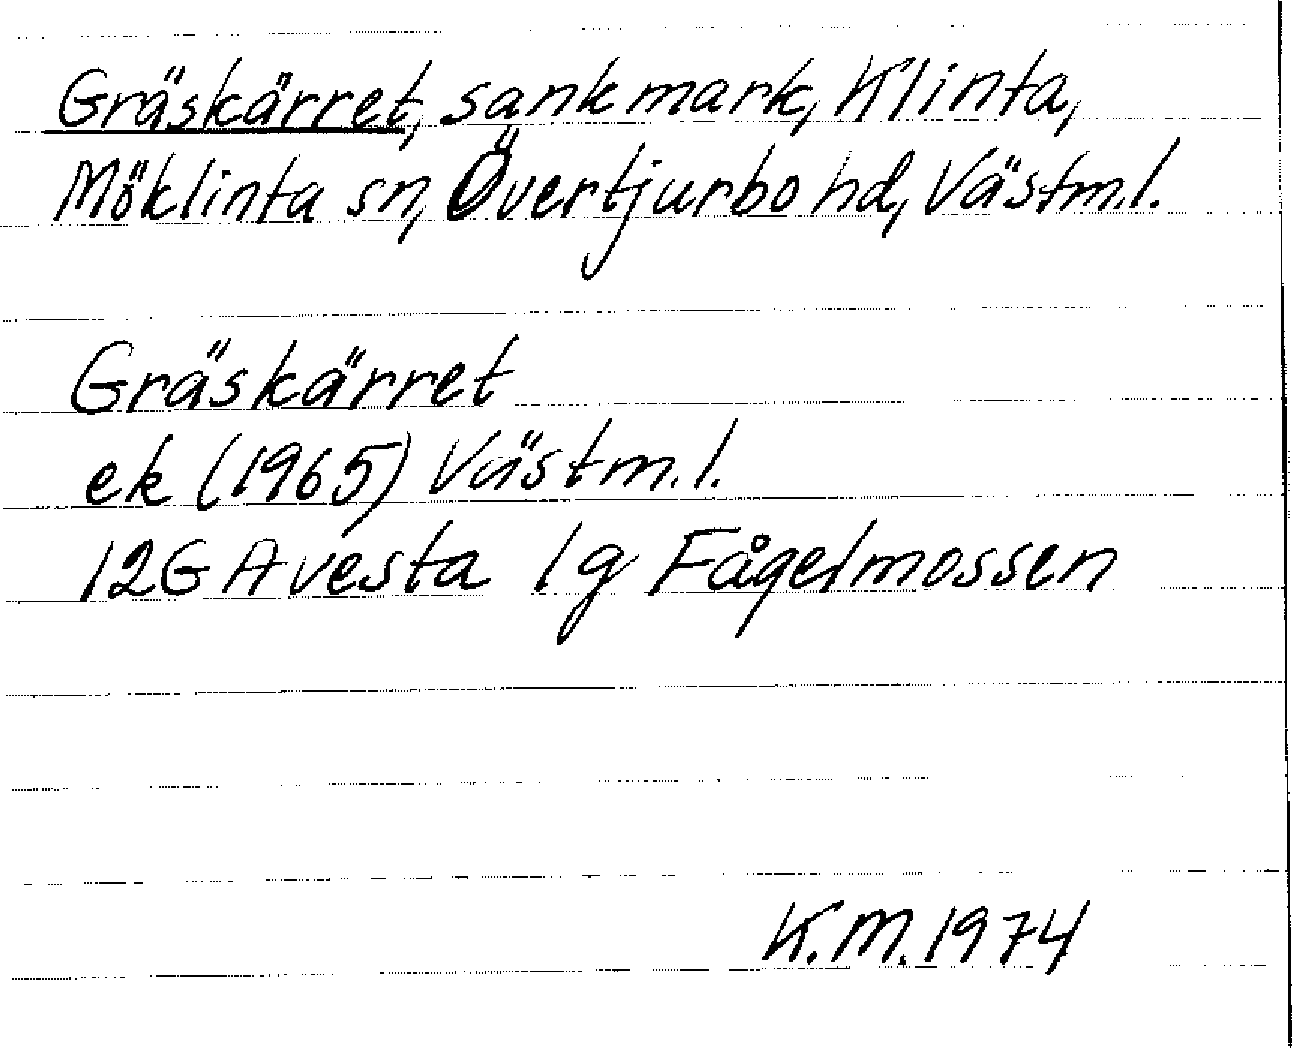 Gräskärret, sankmark, Klinta,
Möklinta sn, Övertjurbo hd, Västm.l.
Gräskärret
ek (1965) Västm.l.
12G Avesta 1g Fågelmossen
K.M. 1974